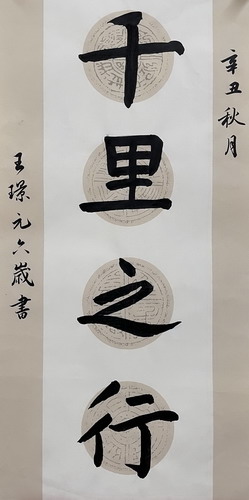 辛丑秋月
千里之行
王璟元六歲書